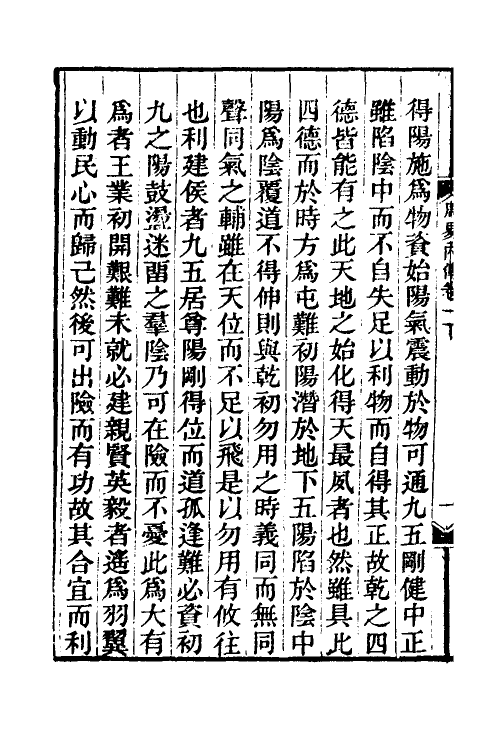 周易內傳卷一下
一
得陽施爲物資始陽氣震動於物可通九五剛健中正
雖陷陰中而不自失足以利物而自得其正故乾之四
德皆能有之此天地之始化得天最夙者也然雖具此
四德而於時方爲屯難初陽潛於地下五陽陷於陰中
陽爲陰覆道不得伸則與乾初勿用之時義同而無同
聲同氣之輔雖在天位而不足以飛是以勿用有攸往
也利建侯者九五居尊陽剛得位而道孤逢難必資初
九之陽鼓盪迷留之羣陰乃可在險而不憂此爲大有
爲者王業初開艱難未就必建親賢英毅者遙爲羽翼
以動民心而歸己然後可出險而有功故其合宜而利